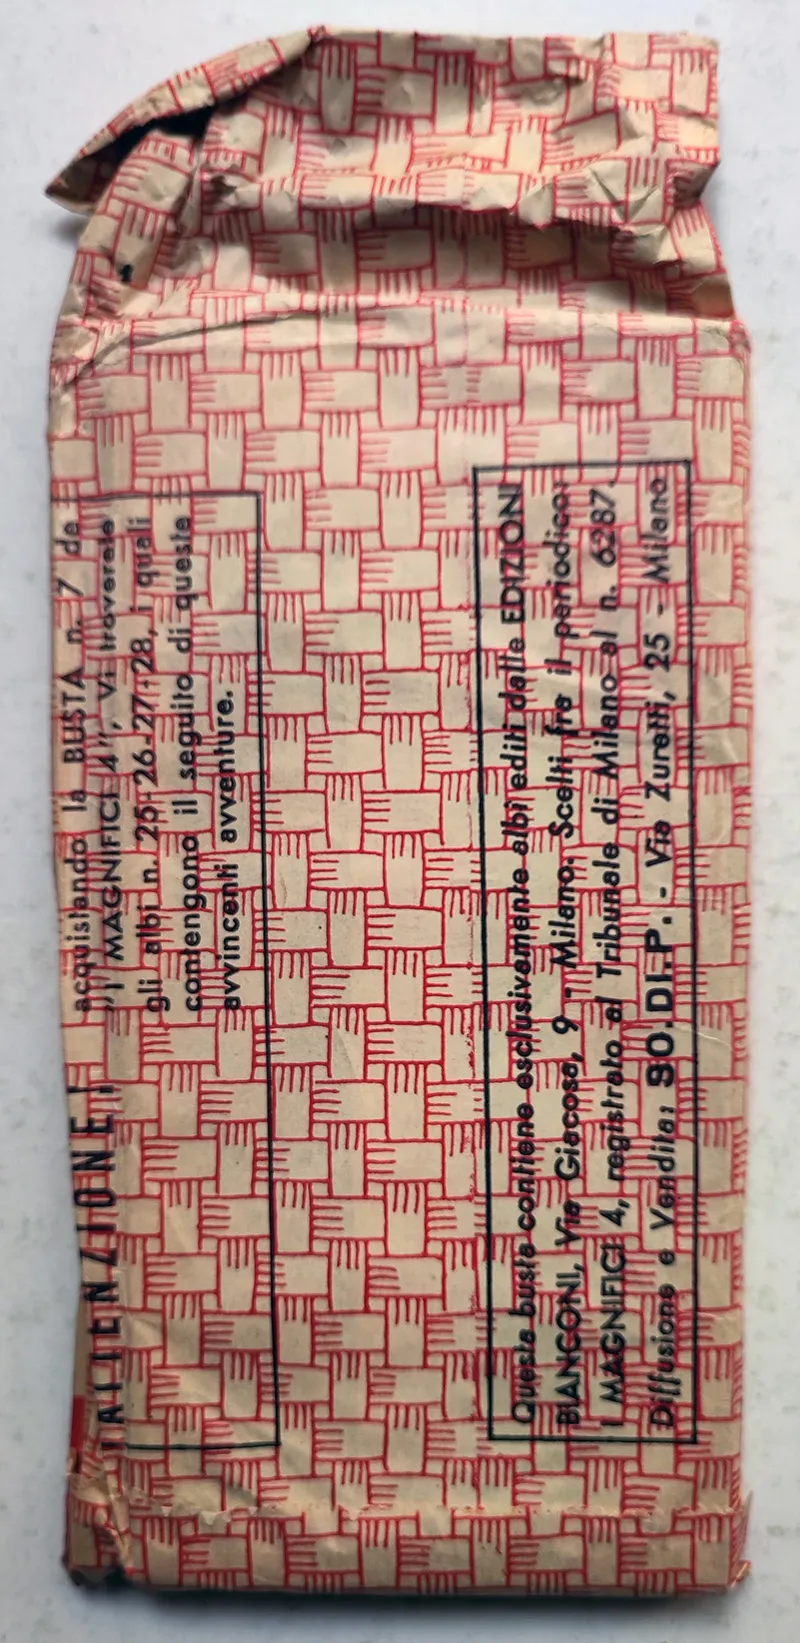 ATTENZIONE!
acquistando la BUSTA n. 7 de
"I MAGNIFICI 4", Vi troverete
gli albi n. 25-26-27-28, i quali
contengono il seguito di queste
avvincenti avventure.
Questa busta contiene esclusivamente albi editi dalle EDIZIONI
BIANCONI, Via Giacosa, 9 - Milano. Scelti fra il periodico:
I MAGNIFICI 4, registrato al Tribunale di Milano al n. 6287.
Diffusione e Vendita: SO.DI.P. - Via Zuretti, 25 - Milano